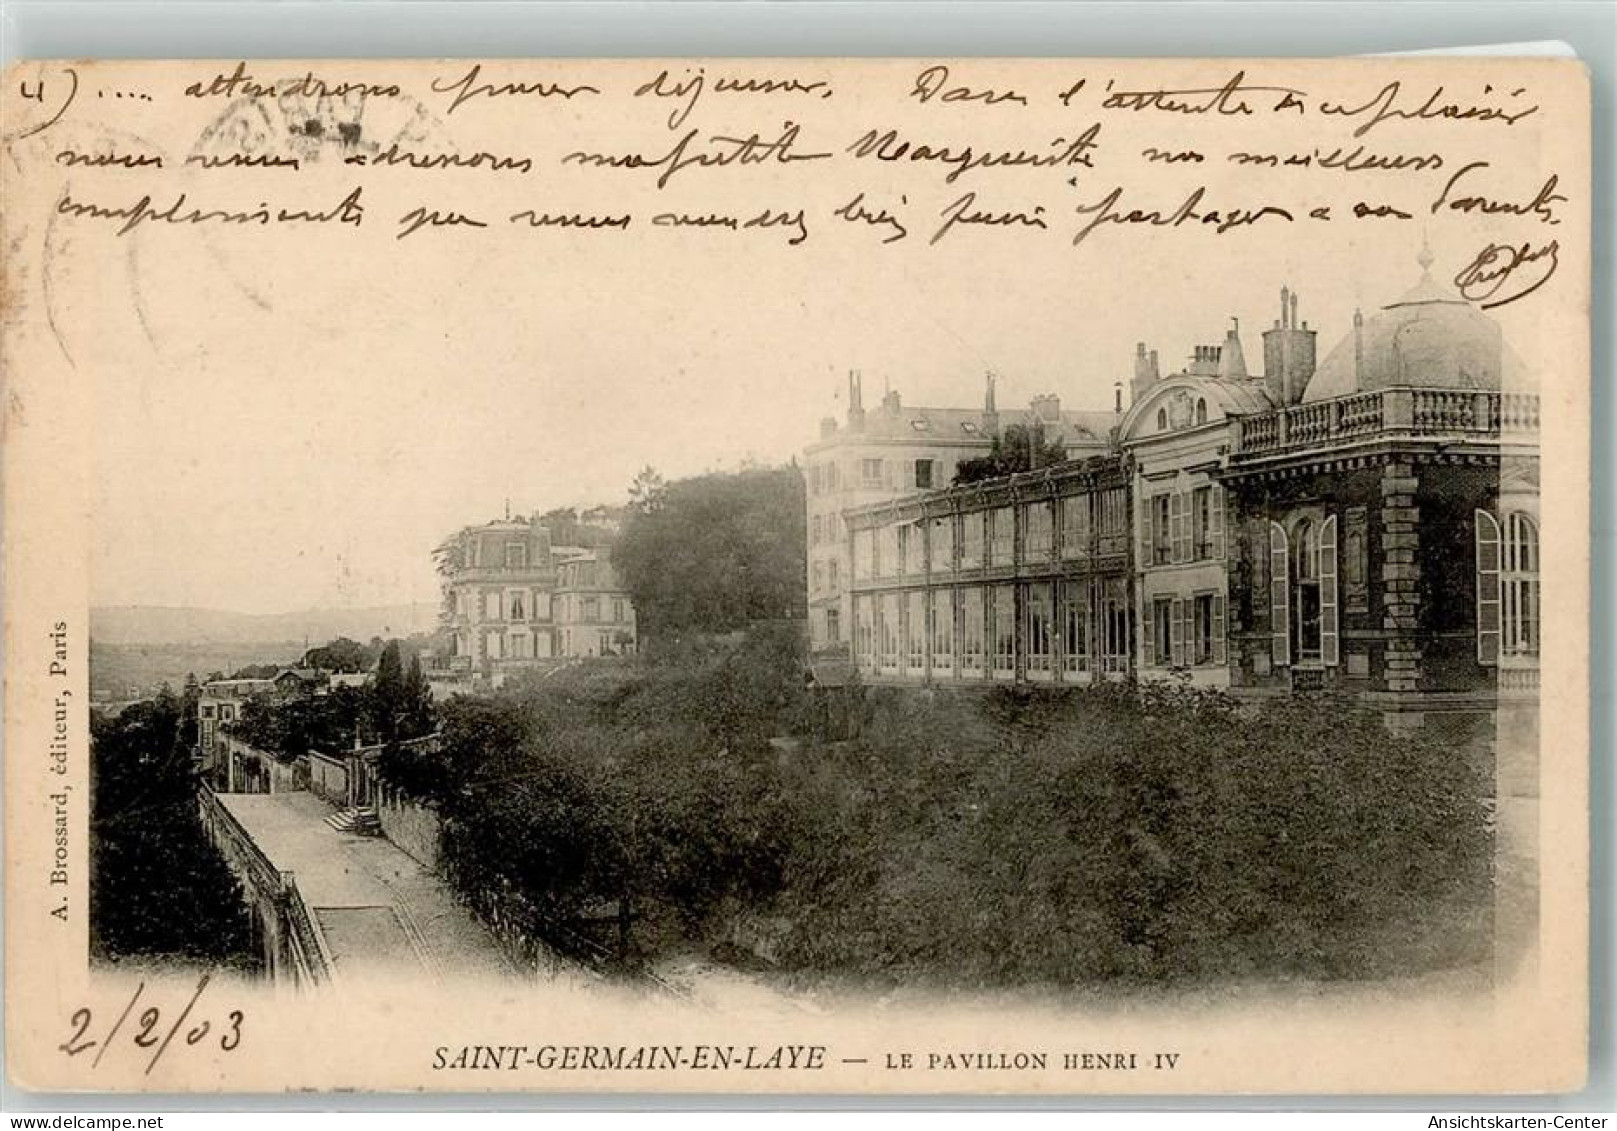 4) .... attendrons pour déjeuner. Dans l'attente de ce plaisir
nous vous adressons ma petite Marguerite nos meilleurs
compliments que vous voudrez bien faire partager à vos Parents.
A. Brossard, éditeur, Paris
2/2/03
SAINT-GERMAIN-EN-LAYE — LE PAVILLON HENRI IV
Ansichtskarten-Center